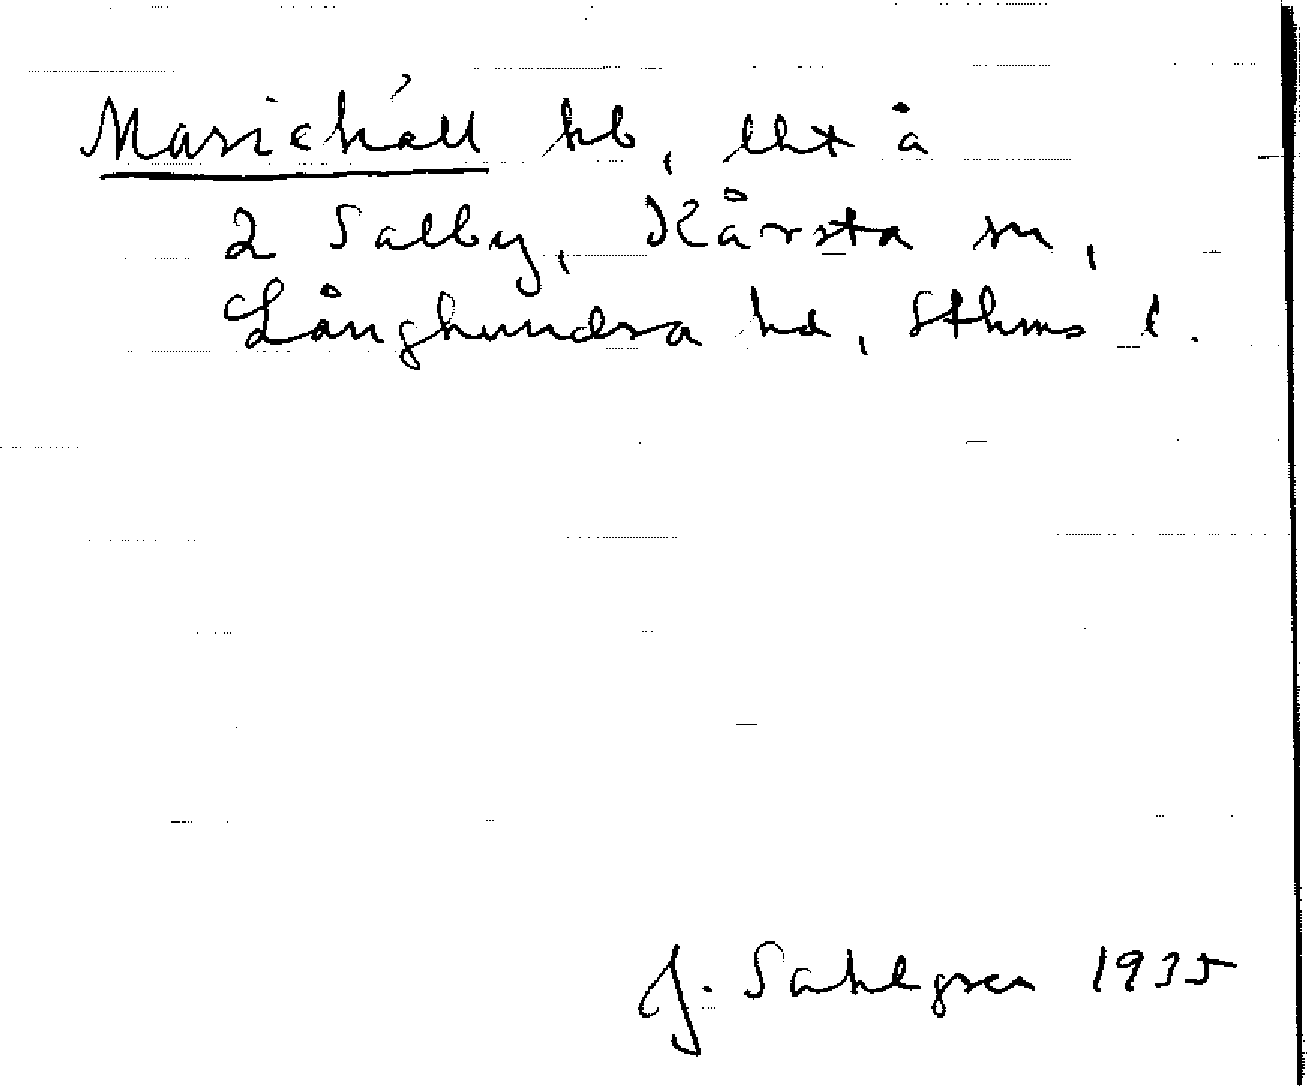 Mariehäll hb, lht å
2 Salby, Kårsta sn,
Långhundra hd, Sthms l.
J. Sahlgren 1935